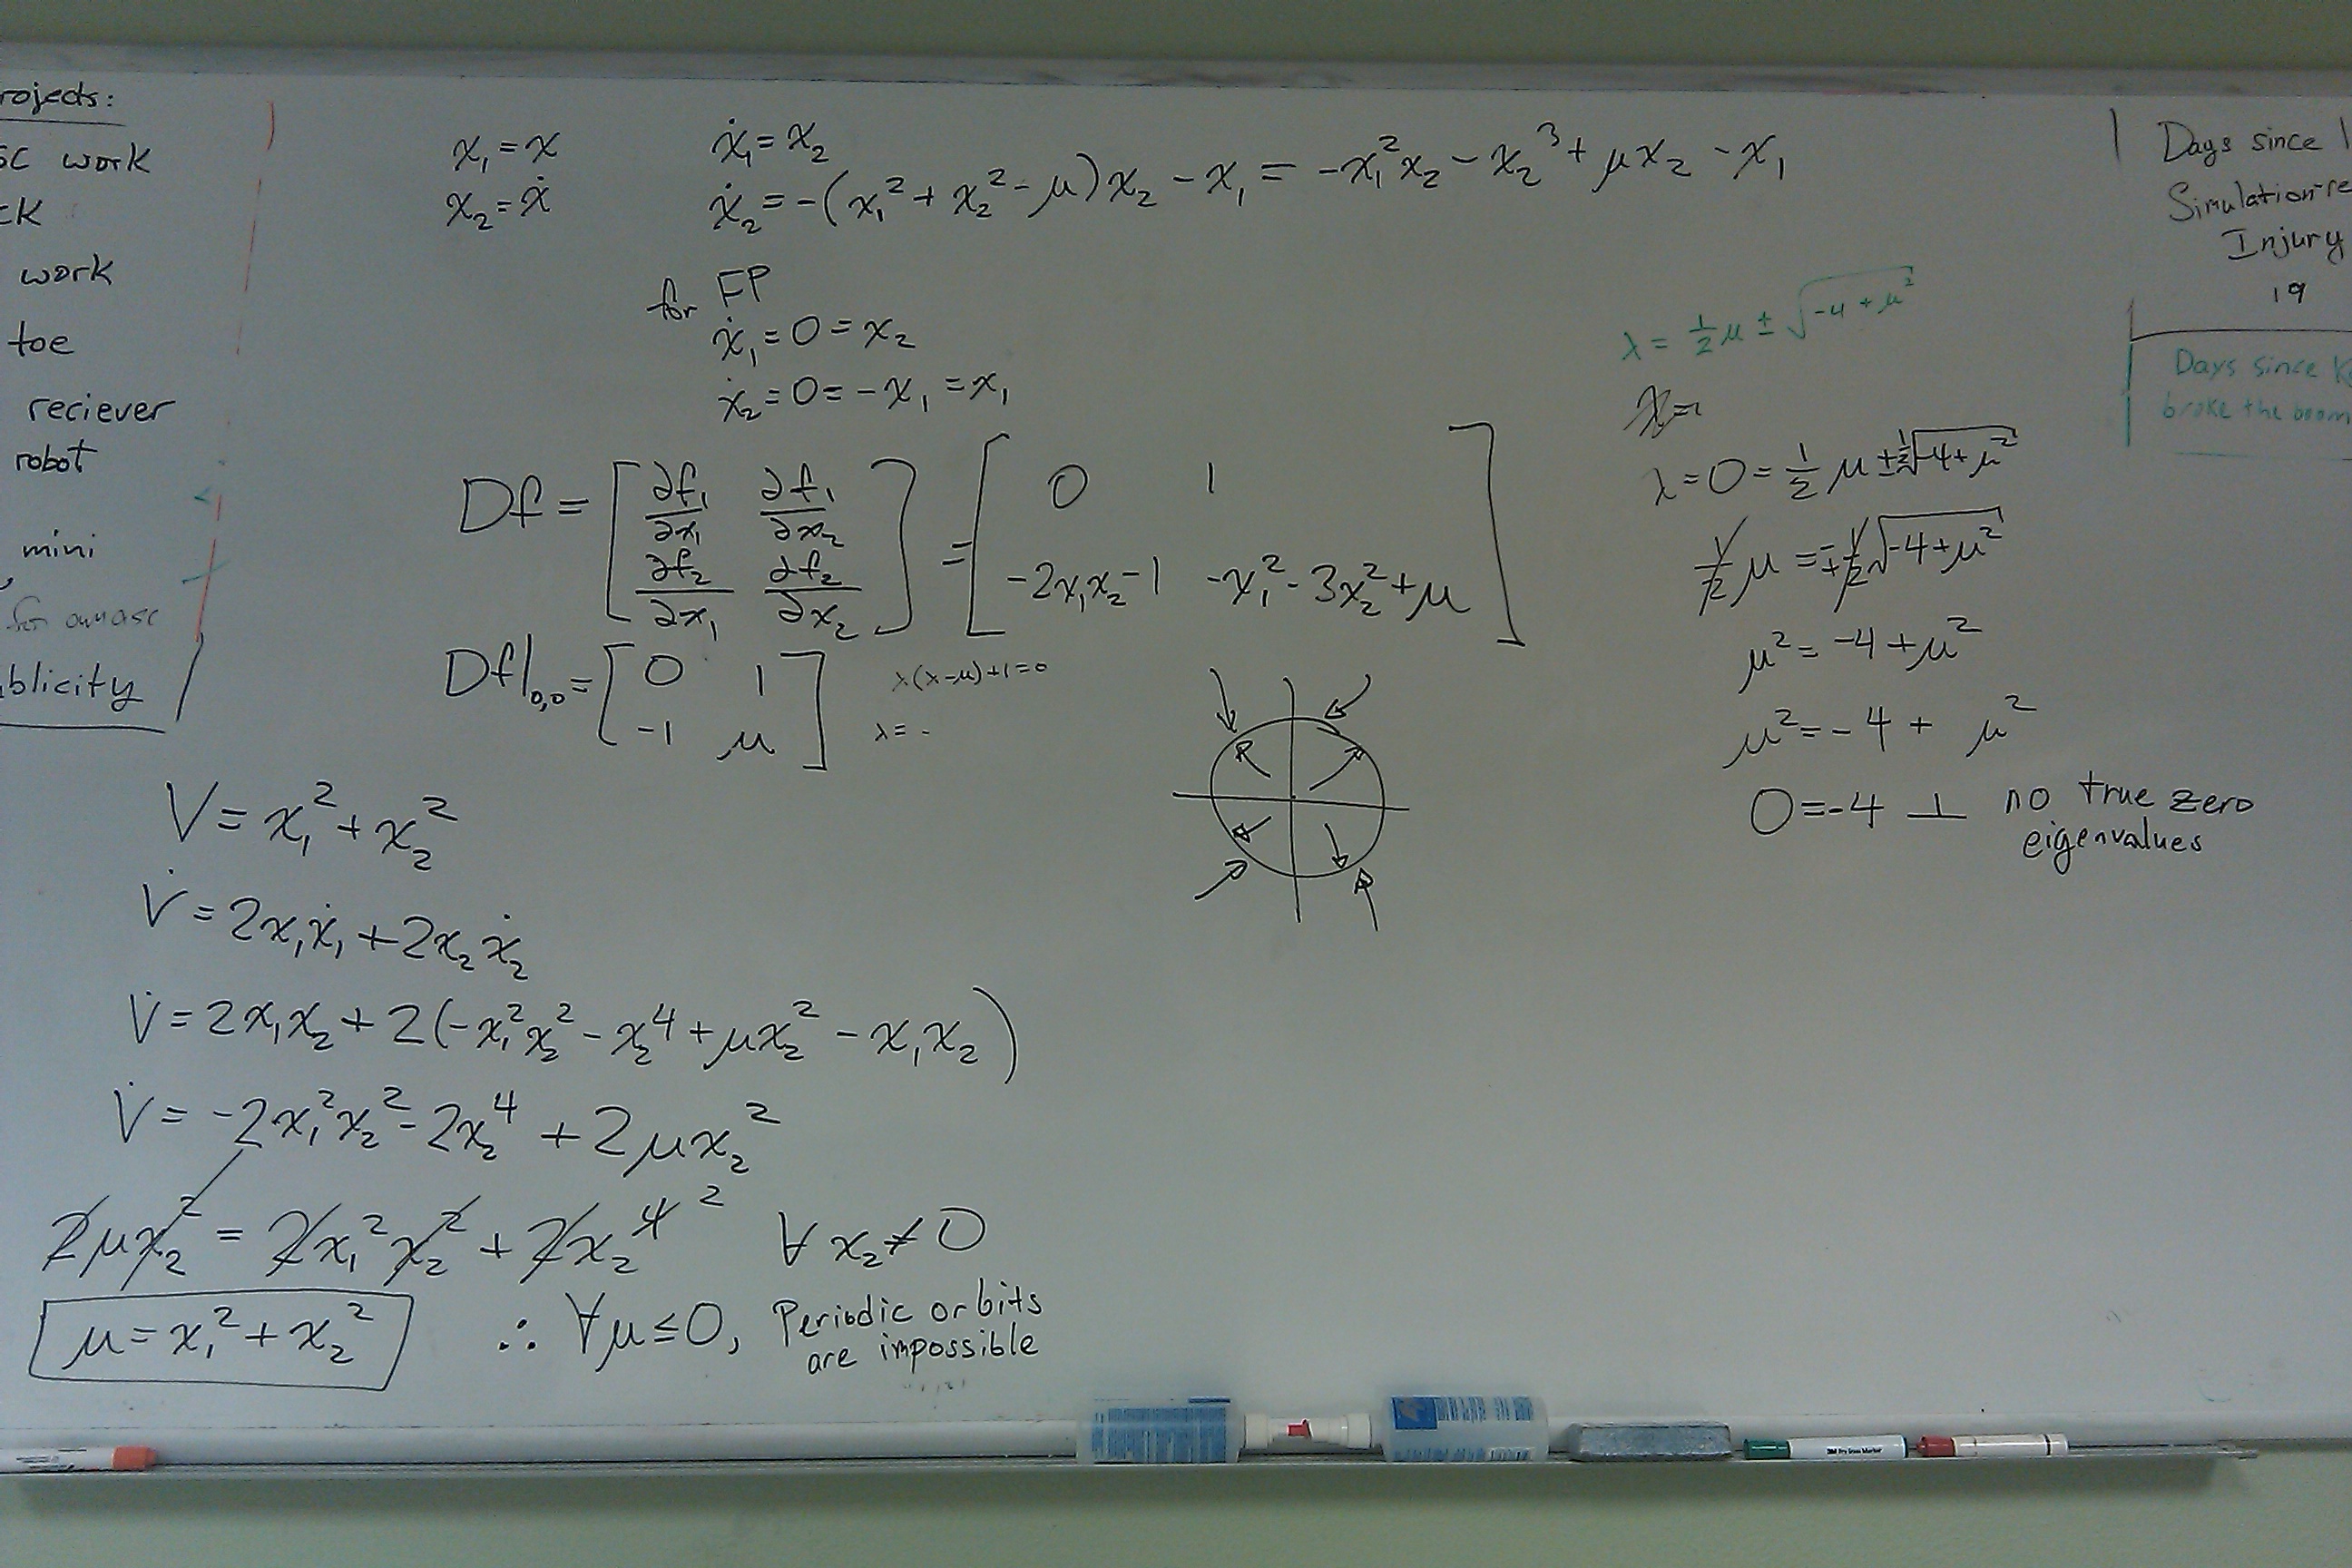 rojects:
SC work
ck
work
toe
reciever
robot
mini
for
blicity
x₁ = x
x₂ = ẋ
ẋ₁ = x₂
ẋ₂ = -(x₁² + x₂² - μ)x₂ - x₁ = -x₁²x₂ - x₂³ + μx₂ - x₁
for FP
ẋ₁ = 0 = x₂
ẋ₂ = 0 = -x₁ = x₁
Df = [∂f₁/∂x₁ ∂f₁/∂x₂; ∂f₂/∂x₁ ∂f₂/∂x₂] = [0 1; -2x₁x₂-1 -x₁²-3x₂²+μ]
Df|₀,₀ = [0 1; -1 μ]
λ(λ-μ)+1=0
λ= -
V = x₁² + x₂²
V̇ = 2x₁ẋ₁ + 2x₂ẋ₂
V̇ = 2x₁x₂ + 2(-x₁²x₂² - x₂⁴ + μx₂² - x₁x₂)
V̇ = -2x₁²x₂² - 2x₂⁴ + 2μx₂²
2μx₂² = 2x₁²x₂² + 2x₂⁴ ² ∀ x₂ ≠ 0
μ = x₁² + x₂² ∴ ∀μ ≤ 0, Periodic orbits
are impossible
λ = ½μ ± √(-4 + μ²)
λ = 0 = ½μ ± ½√(-4+μ²)
½μ = ∓½√(-4+μ²)
μ² = -4 + μ²
μ² = -4 + μ²
0 = -4 ⊥ no true zero
eigenvalues
Days since l
Simulation-re
Injury
19
Days since K
broke the boom
3M Dry Erase Marker